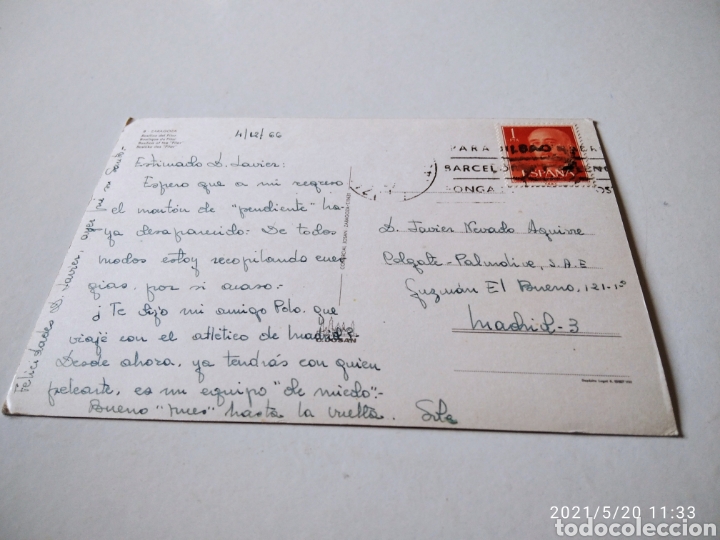 4/12/66
Estimado D. Javier:
Espero que a mi regreso
el montón de "pendiente" ha-
ya desaparecido: De todos
modos estoy recopilando ener
gias, por si acaso:-
¿Te dijo mi amigo Polo, que
viajé con el atlético de Madrid?
Desde ahora, ya tendrás con quien
pelearte, es un equipo "de miedo":-
Bueno "pues" hasta la vuelta.
Felicidades D. Javier, ayer
D. Javier Nevado Aguirre
Colgate-Palmolive, S.A.E
Guzmán El Bueno, 121-1º
Madrid-3
PARA BILBAO
BARCEL
LONGA
ESPAÑA
2021/5/20 11:33
todocoleccion